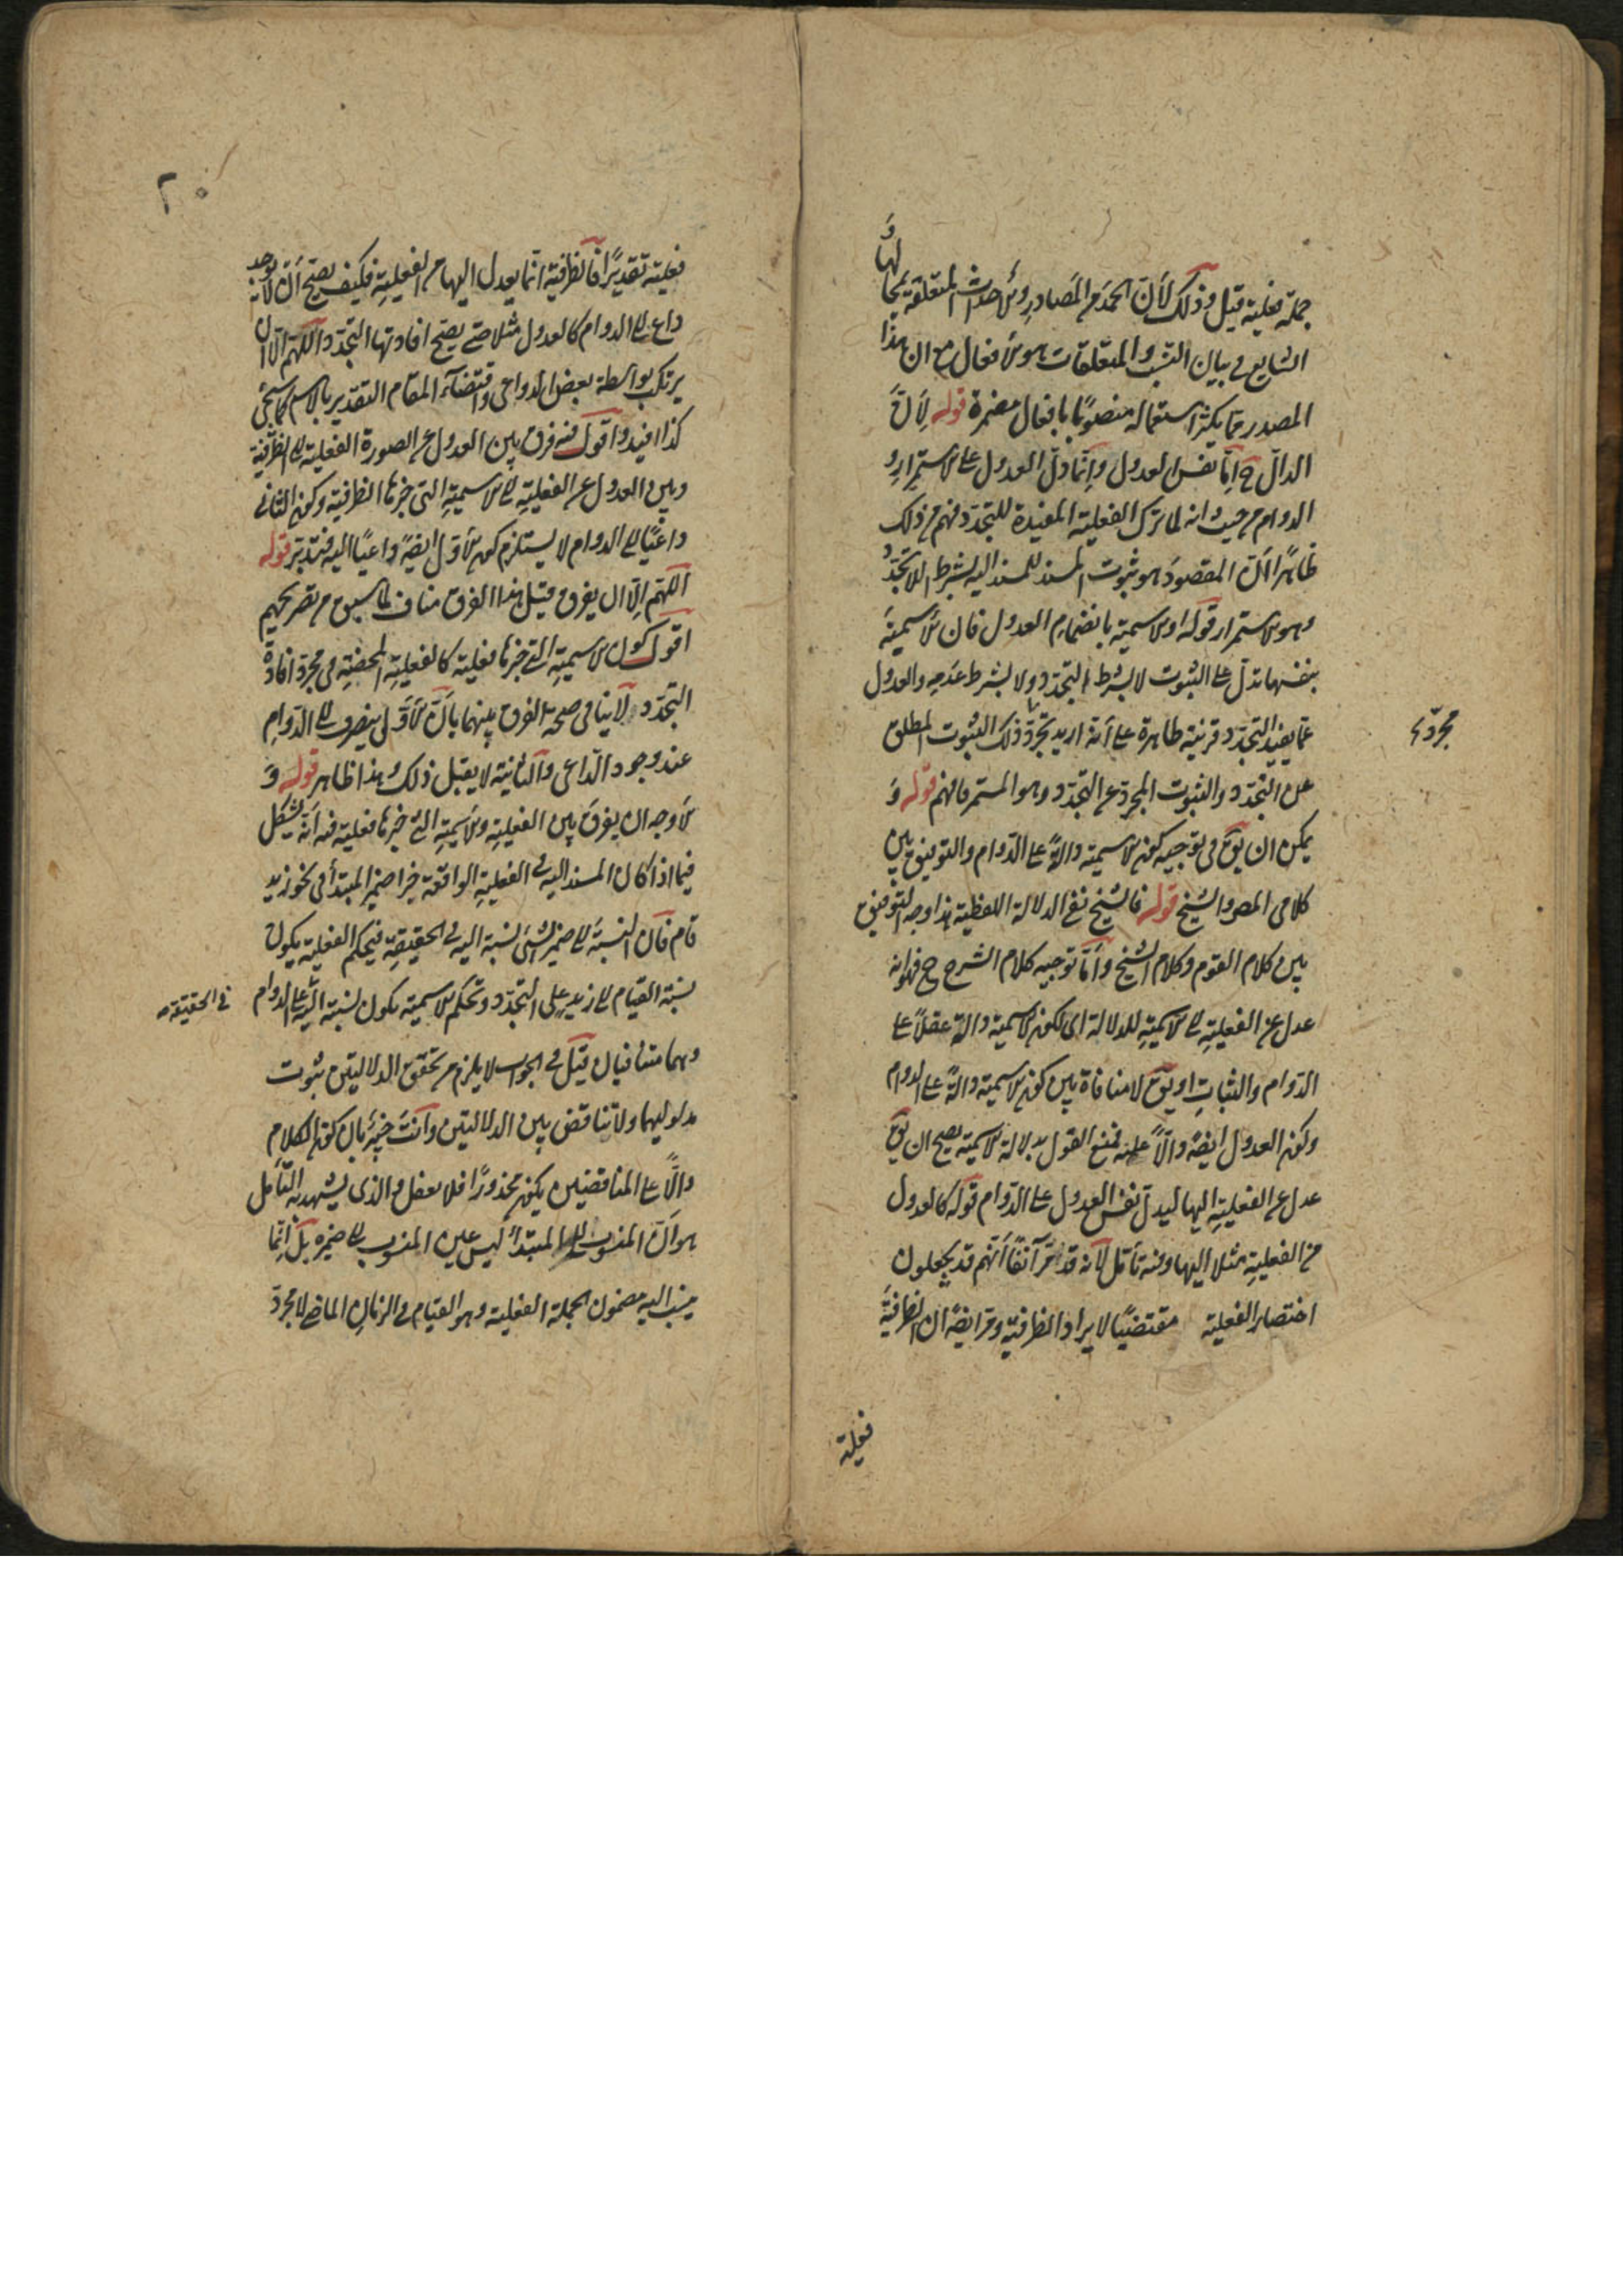 جملة فعلية قيل وذلك لأن الحمد من المصادر والأحداث المتعلقة بمحالها و
الشايع في بيان النسب والمتعلقات هو الأفعال مع ان هذا
المصدر مما يكثر استعماله منصوبا بافعال مضمرة قوله لأن
الدال ح اما نفس العدول وانما دل العدول على الاستمرار و
الدوام من حيث انه لما ترك الفعلية المفيدة للتجدد فهم من ذلك
ظاهرا ان المقصود هو ثبوت المسند للمسند اليه بشرط اللاتجدد
وهو الاستمرار قوله او الاسمية بانضمام العدول فان الاسمية
بنفسها تدل على الثبوت لا بشرط التجدد ولا بشرط عدمه والعدول
عما يفيد التجدد قرينة ظاهرة على أنه اريد تجرد ذلك الثبوت المطلق
مجرد
عن التجدد والثبوت المجرد عن التجدد هو المستمر فافهم قوله و
يمكن ان يق في توجيه كون الاسمية دالة على الدوام والتوفيق بين
كلامي المص والشيخ قوله فالشيخ نفى الدلالة اللفظية هذا وجه التوفيق
بين كلام القوم وكلام الشيخ وأما توجيه كلام الشرح ح فهو انه
عدل عن الفعلية الى الاسمية للدلالة اى لكون الاسمية دالة عقلا على
الدوام والثبات او يق لا منافاة بين كون الاسمية دالة على الدوام
وكون العدول ايضا دالا عليه فمنع القول بدلالة الاسمية يصح ان يق
عدل عن الفعلية اليها ليدل نفس العدول على الدوام قوله كالعدول
من الفعلية مثلا اليها وفيه تأمل لأنه قد مر آنفا أنهم قد يجعلون
اختصار الفعلية مقتضيا لايراد الظرفية ومر ايضا ان الظرفية
فعلية
٢٠
فعلية تقديرا فالظرفية انما يعدل اليها من الفعلية فكيف يصح أن لا يوجد
داع الى الدوام كالعدول مثلا حتى يصح افادتها التجدد اللهم الا ان
يرتكب بواسطة بعض الدواعى واقتضاء المقام التقدير بالاسم كما سيجئ
كذا افيد واقول فيه فرق بين العدول عن الصورة الفعلية الى الظرفية
وبين العدول عن الفعلية الى الاسمية التى خبرها الظرفية وكون الثانى
داعيا الى الدوام لا يستلزم كون الأول ايضا داعيا اليه فتدبر قوله
اللهم الا ان يفرق قيل هذا الفرق مناف لما سبق من تصريحهم
اقول كون الاسمية التى خبرها فعلية كالفعلية المحضة فى مجرد افادة
التجدد لا ينافى صحة الفرق بينهما بأن الأولى ينصرف الى الدوام
عند وجود الداعى والثانية لا يقبل ذلك وهذا ظاهر قوله و
الأوجه ان يفرق بين الفعلية والاسمية التى خبرها فعلية فيه انه يشكل
فيما اذا كان المسند اليه فى الفعلية الواقعة خبرا ضمير المبتدأ فى نحو زيد
قام فان النسبة الى ضمير الشئ نسبة اليه فى الحقيقة فبحكم الفعلية يكون
نسبة القيام الى زيد على التجدد وبحكم الاسمية يكون نسبته اليه على الدوام
فى الحقيقة
وهما متنافيان قيل فى الجواب لا يلزم من تحقق الدلالتين ثبوت
مدلوليهما ولا تناقض بين الدلالتين وأنت خبير بان كون الكلام
دالا على المتناقضين يكون محذورا فلا يعقل والذى يشهد به التأمل
هو ان المنسوب الى المبتدأ ليس عين المنسوب الى ضميره بل انما
ينسب اليه مضمون الجملة الفعلية وهو القيام فى الزمان الماضى لا مجرد